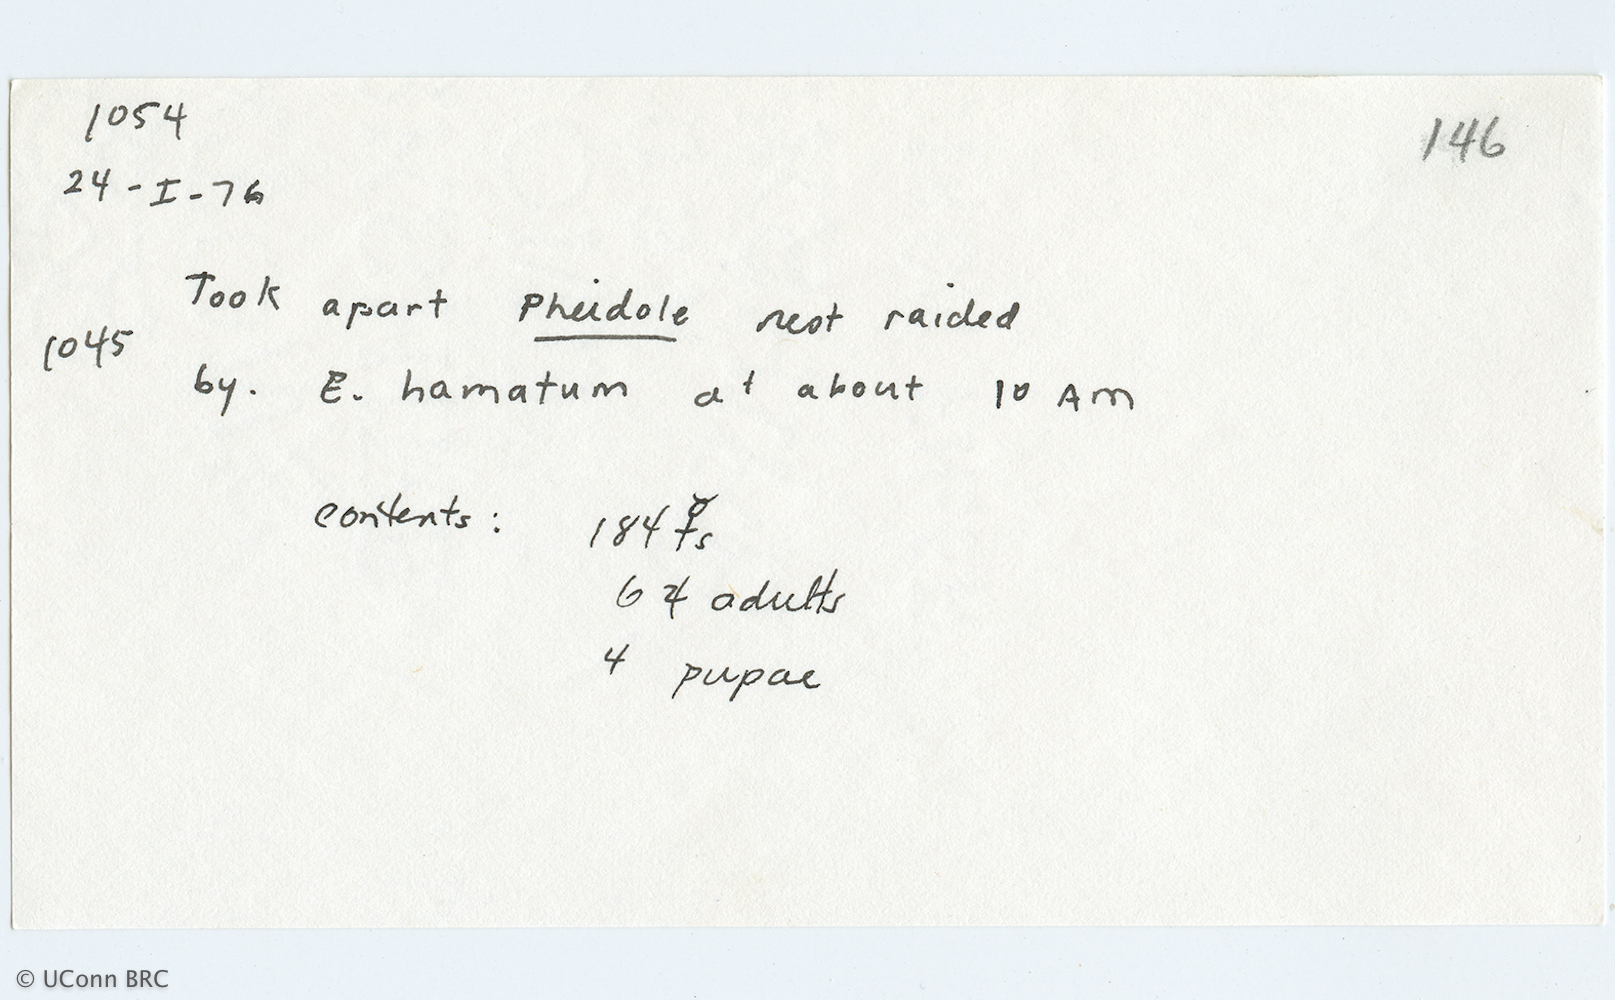 1054
146
24-I-76
Took apart Pheidole nest raided
1045
by. E. hamatum at about 10 AM
contents: 184 ☿s
6 ♃ adults
4 pupae
© UConn BRC